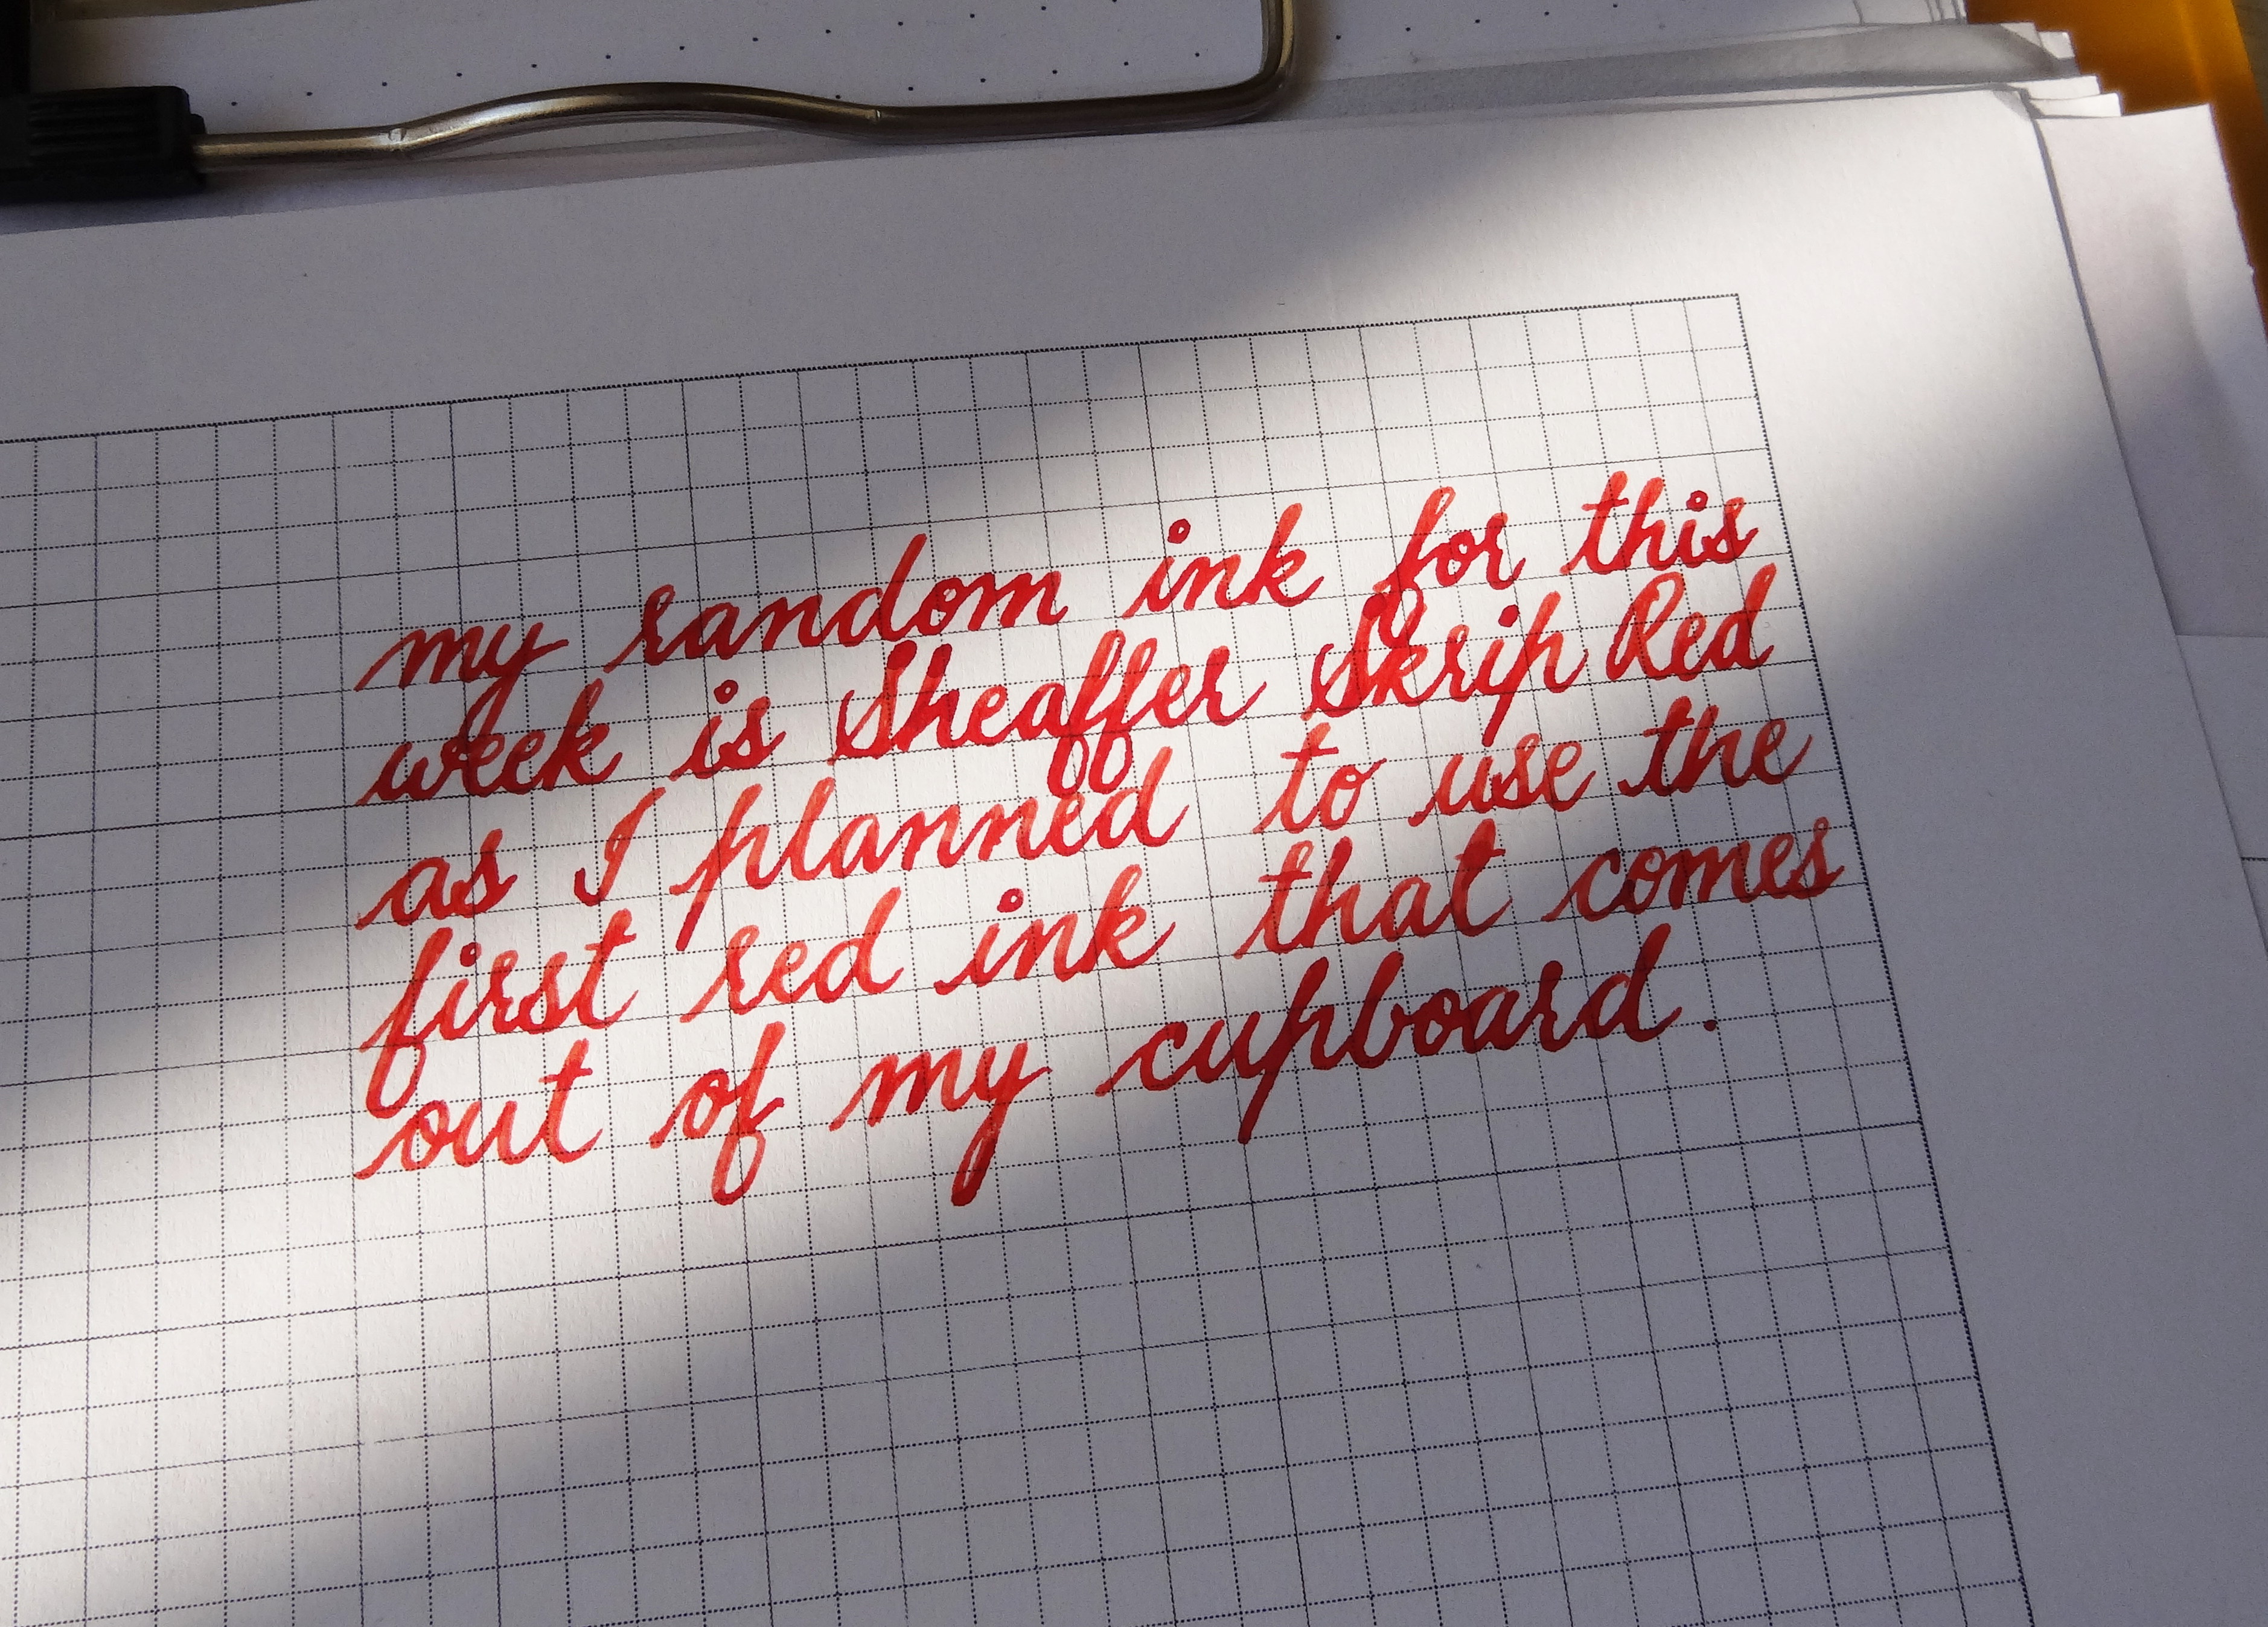 my random ink for this
week is Sheaffer Skrip Red
as I planned to use the
first red ink that comes
out of my cupboard.